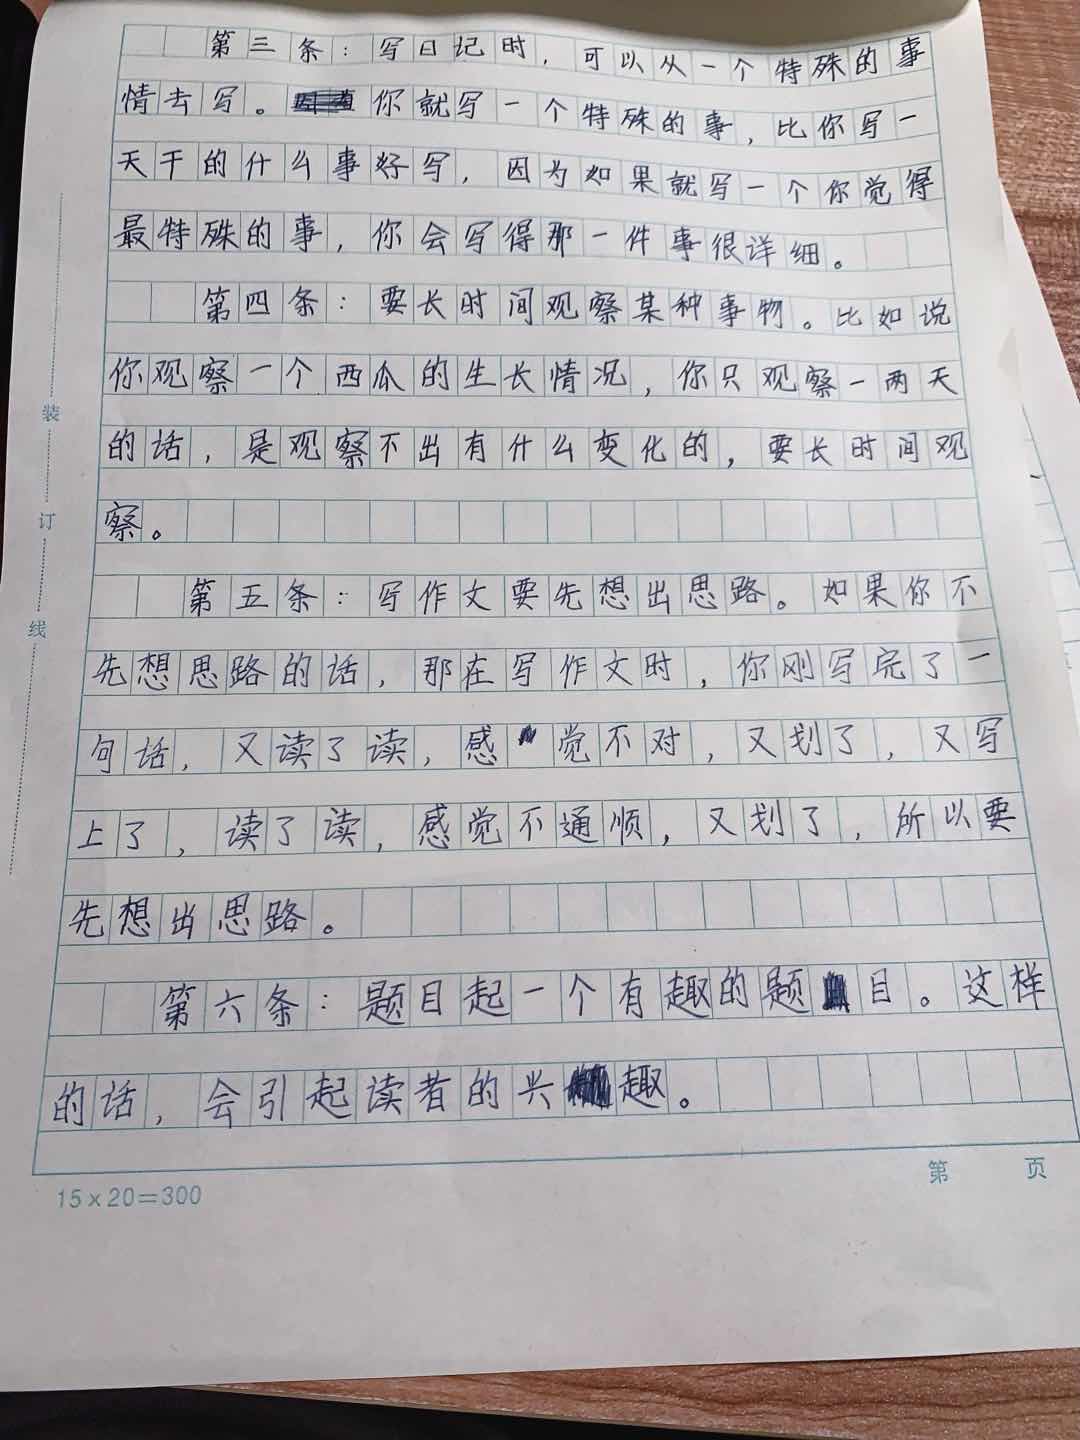 第三条：写日记时，可以从一个特殊的事
情去写。你就写一个特殊的事，比你写一
天干的什么事好写，因为如果就写一个你觉得
最特殊的事，你会写得那一件事很详细。
第四条：要长时间观察某种事物。比如说
你观察一个西瓜的生长情况，你只观察一两天
的话，是观察不出有什么变化的，要长时间观
察。
第五条：写作文要先想出思路。如果你不
先想思路的话，那在写作文时，你刚写完了一
句话，又读了读，感觉不对，又划了，又写
上了，读了读，感觉不通顺，又划了，所以要
先想出思路。
第六条：题目起一个有趣的题目。这样
的话，会引起读者的兴趣。
装
订
线
15×20=300
第 页